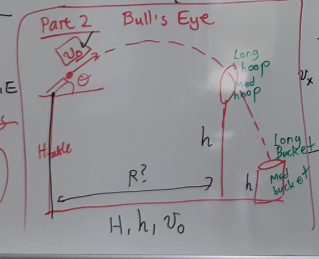 Part 2 Bull's Eye
v₀
θ
Long
hoop
Med
hoop
H table
h
Long
Bucket
Med
bucket
h
R?
H, h, v₀
E
vₓ